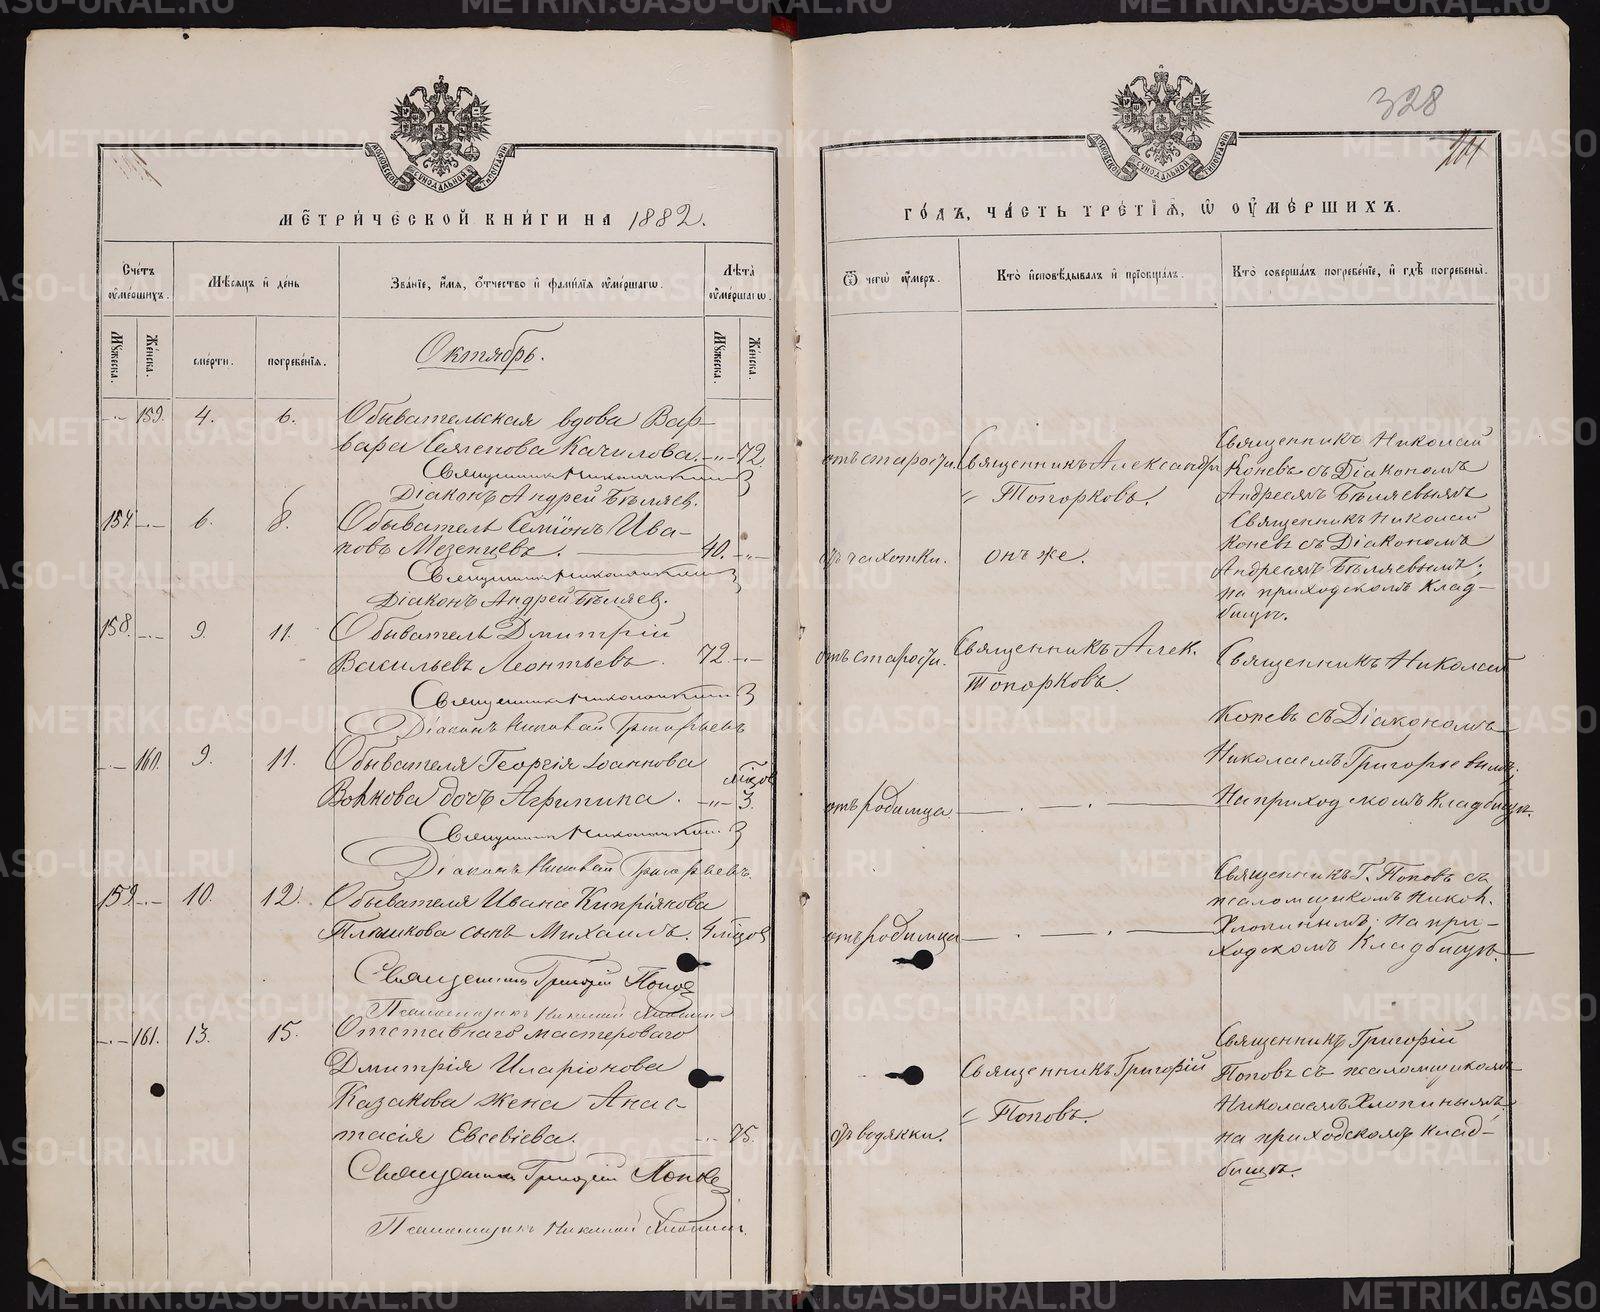 328
МЕТРИЧЕСКОЙ КНИГИ НА 1882.
ГОДЪ, ЧАСТЬ ТРЕТІЯ, Ѡ ОУМЕРШИХЪ.
Счетъ оумершихъ.
Мѣсяцъ и день
Званіе, имя, отчество и фамилія оумершагѡ.
Лѣта оумершагѡ.
Ѿ чегѡ оумеръ.
Кто исповѣдывалъ и пріобщалъ.
Кто совершалъ погребеніе, и гдѣ погребены.
Мужеска.
Женска.
смерти.
погребенія.
Мужеска.
Женска.
Октябрь.
159. 4. 6. Обывательская вдова Вар-
вара Семенова Качилова. 72.
отъ старости.
Священникъ Александръ
Топорковъ.
Священникъ Николай
Коневъ съ Діакономъ
Андреемъ Бѣляевымъ
Священникъ Николай Коневъ
Діаконъ Андрей Бѣляев.
157 6. 8. Обыватель Семіонъ Ива-
новъ Мезенцевъ. 40.
отъ чахотки.
онъ же.
Священникъ Николай
Коневъ съ Діакономъ
Андреемъ Бѣляевымъ;
на приходскомъ Клад-
бищѣ.
Діаконъ Андрей Бѣляев.
158. 9. 11. Обыватель Дмитрій
Васильевъ Леонтьевъ. 72.
отъ старости.
Священникъ Алек.
Топорковъ.
Священникъ Николай
Коневъ съ Діакономъ
Николаемъ Григорьевымъ.
На приходскомъ Кладбищѣ.
Діаконъ Николай Григорьевъ
160. 9. 11. Обывателя Георгія Іоаннова
Волкова дочь Агрипина. 3. мѣсцов
отъ родимца
Діаконъ Николай Григорьевъ
159 10. 12. Обывателя Ивана Кипріянова
Плашкова сынъ Михаилъ. 4 мѣсцов
отъ родимца
Священникъ Г. Поповъ съ
псаломщикомъ Никол.
Хлопинымъ; На при-
ходскомъ Кладбищѣ.
Священникъ Григорій Попов
Псаломщикъ Николай Хлопинъ
161. 13. 15. Отставнаго мастероваго
Дмитрія Иларіонова
Казакова жена Анас-
тасія Евсевіева. 75.
отъ водянки.
Священникъ Григорій
Поповъ.
Священникъ Григорій
Поповъ съ псаломщикомъ
Николаемъ Хлопинымъ
на приходскомъ клад-
бищѣ.
Священникъ Григорій Попов
Псаломщикъ Николай Хлопинъ.